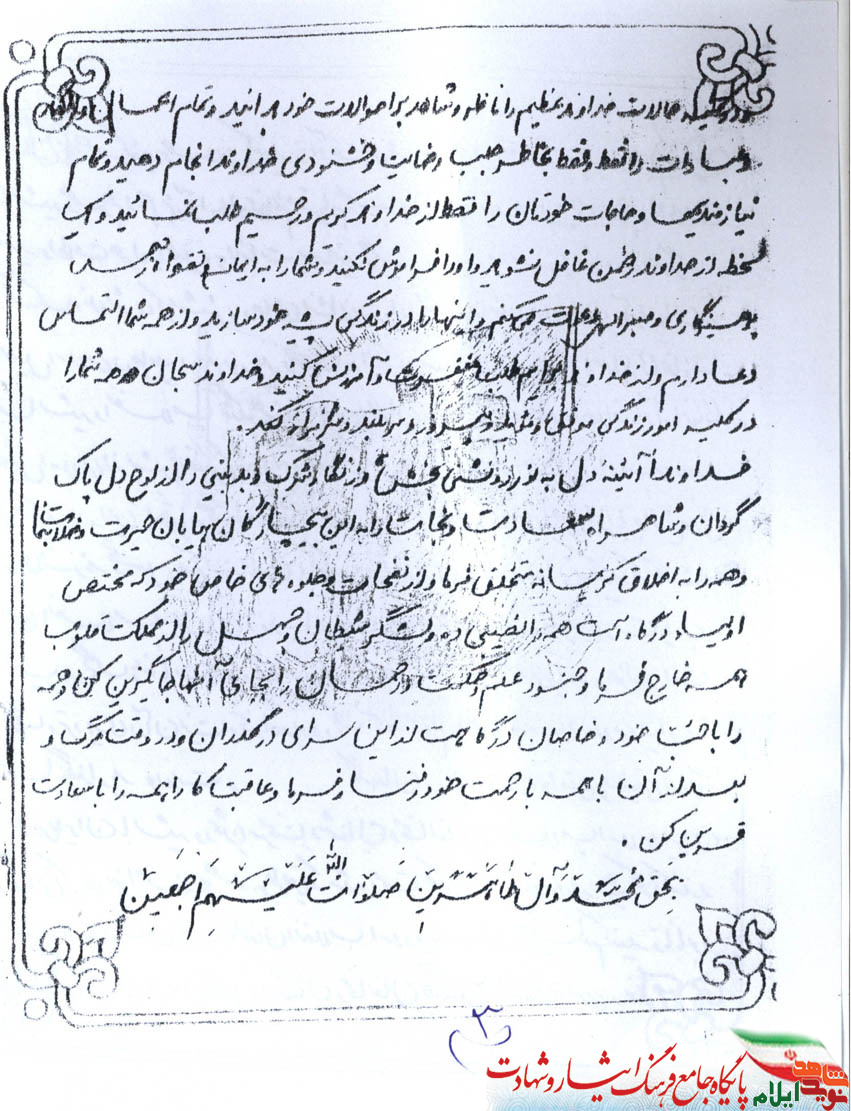 و در کلیه حالات خداوند عظیم را ناظر و شاهد بر احوالات خود بدانید و تمام اعمال و
و عبادات را فقط و فقط بخاطر جلب رضایت و خشنودی خداوند انجام دهید و تمام
نیازمندیها و حاجات خودتان را فقط از خداوند کریم و رحیم طلب نمائید و
لحظه از خداوند رحمن غافل نشوید و او را فراموش نکنید و شما را به ایمان و تقوا
پرهیزگاری و صبر الهی دعوت میکنم و اینها را در زندگی پیشه خود سازید و از همه شما التماس
دعا دارم و از خداوند برایم طلب مغفرت و آمرزش کنید خداوند سبحان همه شما را
در کلیه امور زندگی موفق و مؤید و پیروز و سربلند و سرفراز کند.
خداوندا آئینه دل به نور روشنی بخش و زنگار شرک و بدبینی را از لوح دل پاک
گردان و شاهراه سعادت و نجات را به این بیچارگان بیابان حیرت و ضلالت بنما
و همه را به اخلاق کریمانه متخلق فرما و از نفحات و جلوه های خاص خود که مختص
اولیاء درگاه است همه را نصیبی ده و لشگر شیطان و جهل را از مملکت قلوب
همه خارج فرما و جنود علم و حکمت و رحمان را بجای آنها جایگزین کن و همه
را با حب خود و خاصان درگاهت از این سرای درگذران و در وقت مرگ و
بعد از آن با همه با رحمت خود رفتار فرما و عاقبت کار همه را با سعادت
قرین کن.
بِحَق مُحَمَّد وَآلِ طاهِرین صَلَواتُ اللهِ عَلَیْهِم اَجْمَعین
۳
پایگاه جامع فرهنگ ایثار و شهادت
نوید شاهد ایلام